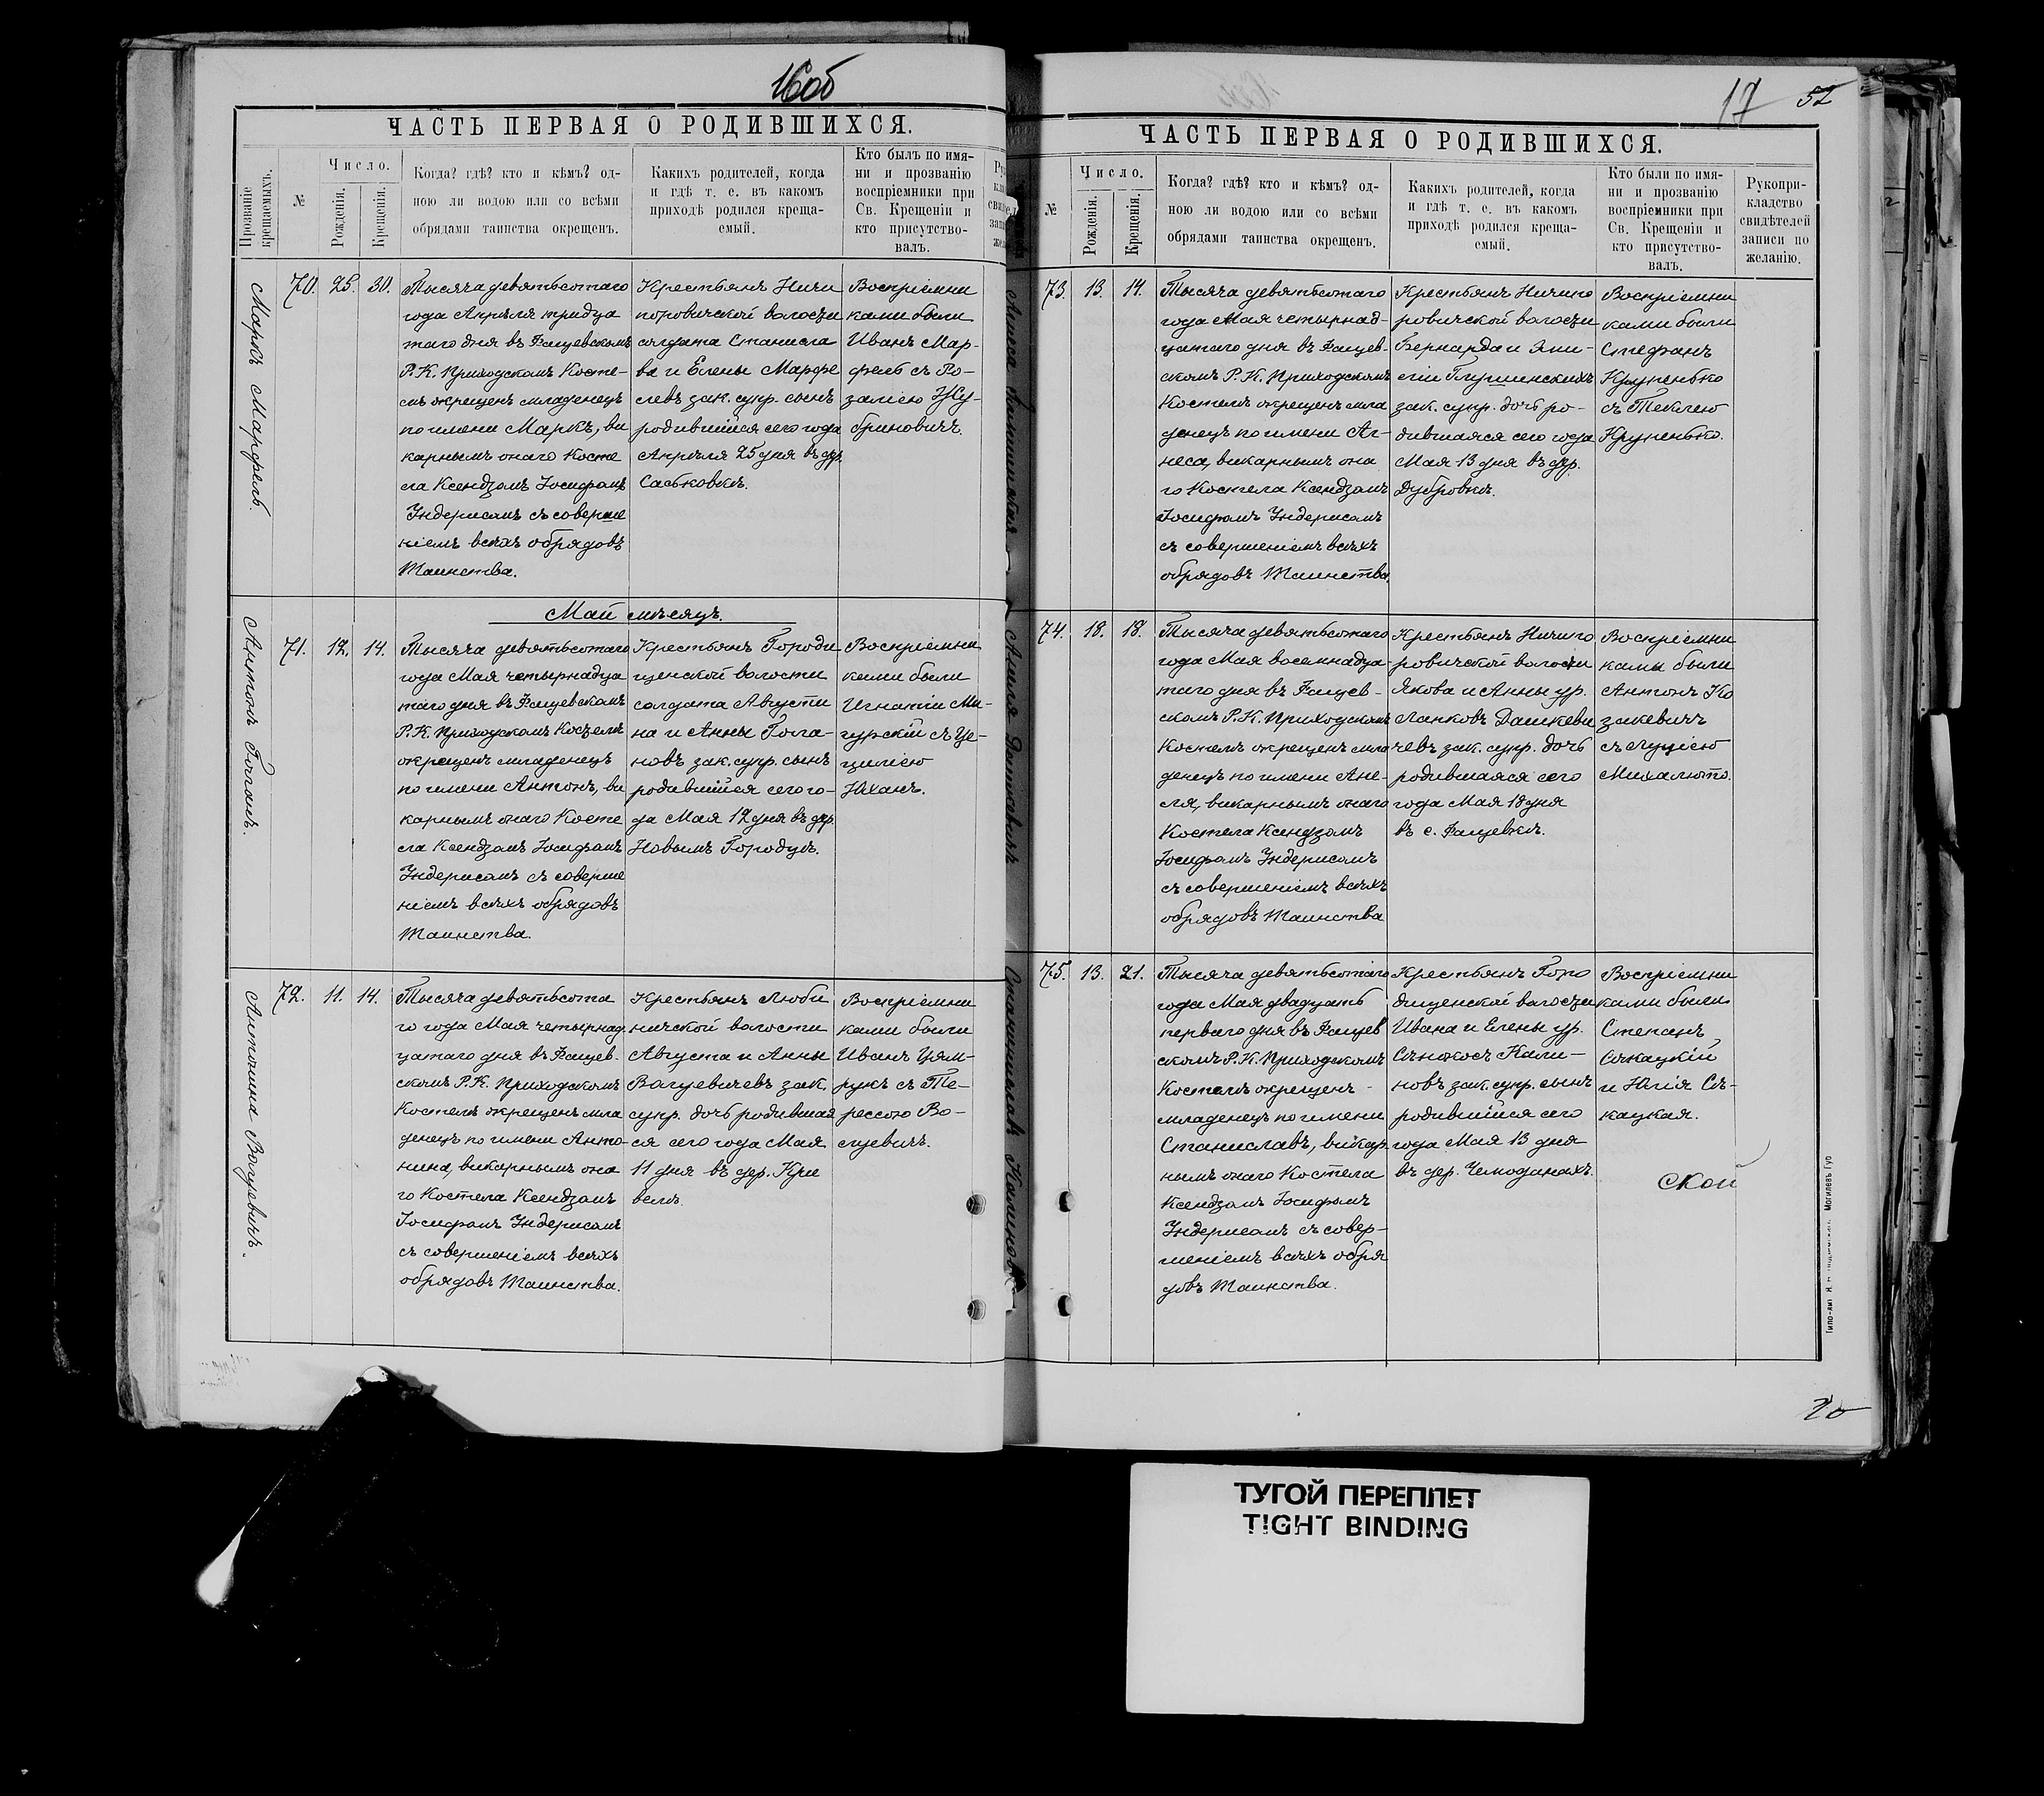 16об
ЧАСТЬ ПЕРВАЯ О РОДИВШИХСЯ.
Прозваніе крещаемыхъ.
№
Число.
Рожденія.
Крещенія.
Когда? гдѣ? кто и кѣмъ? од-
ною ли водою или со всѣми
обрядами таинства окрещенъ.
Какихъ родителей, когда
и гдѣ т. е. въ какомъ
приходѣ родился креща-
емый.
Кто былъ по имя-
ни и прозванію
воспріемники при
Св. Крещеніи и
кто присутство-
валъ.
Маркъ Марфель.
70. 25. 30.
Тысяча девятьсотаго
года Апрѣля тридца
таго дня въ Фащевскомъ
Р.К. Приходскомъ Косте-
лѣ окрещенъ младенецъ
по имени Маркъ, ви
карнымъ онаго Косте
ла Ксендзомъ Іосифомъ
Индерисомъ съ соверше
ніемъ всѣхъ обрядовъ
Таинства.
Крестьянъ Ничи
поровичской волости
солдата Станисла
ва и Елены Марфе
левъ зак. супр. сынъ
родившійся сего года
Апрѣля 25 дня въ дер.
Саськовкѣ.
Воспріемни
ками были
Иванъ Мар-
фель съ Ро-
заліею Жу-
бриновичъ.
Май мѣсяцъ.
Антонъ Гоганъ.
71. 12. 14.
Тысяча девятьсотаго
года Мая четырнадца
таго дня въ Фащевскомъ
Р.К. Приходскомъ Костелѣ
окрещенъ младенецъ
по имени Антонъ, ви
карнымъ онаго Косте
ла Ксендзомъ Іосифомъ
Индерисомъ съ соверше
ніемъ всѣхъ обрядовъ
Таинства.
Крестьянъ Городи
щенской волости
солдата Августи
на и Анны Гога-
новъ зак. супр. сынъ
родившійся сего го-
да Мая 12 дня въ дер.
Новымъ Городцѣ.
Воспріемни
ками были
Игнатій Ми-
гурскій съ Це-
циліею
Юханъ.
Антонина Вагуевичъ.
72. 11. 14.
Тысяча девятьсота
го года Мая четырнад
цатаго дня въ Фащев-
скомъ Р.К. Приходскомъ
Костелѣ окрещенъ мла
денецъ по имени Анто-
нина, викарнымъ она
го Костела Ксендзомъ
Іосифомъ Индерисомъ
съ совершеніемъ всѣхъ
обрядовъ Таинства.
Крестьянъ Люби
ничской волости
Августа и Анны
Вагуевичевъ зак.
супр. дочь родившая
ся сего года Мая
11 дня въ дер. Кри
велѣ.
Воспріемни
ками были
Иванъ Цям-
рукъ съ Те-
рессою Во-
суевичъ.
17 52
ЧАСТЬ ПЕРВАЯ О РОДИВШИХСЯ.
№
Число.
Рожденія.
Крещенія.
Когда? гдѣ? кто и кѣмъ? од-
ною ли водою или со всѣми
обрядами таинства окрещенъ.
Какихъ родителей, когда
и гдѣ т. е. въ какомъ
приходѣ родился креща-
емый.
Кто были по имя-
ни и прозванію
воспріемники при
Св. Крещеніи и
кто присутство-
валъ.
Рукопри-
кладство
свидѣтелей
записи по
желанію.
73. 13. 14.
Тысяча девятьсотаго
года Мая четырнад-
цатаго дня въ Фащев-
скомъ Р.К. Приходскомъ
Костелѣ окрещенъ мла
денецъ по имени Аг-
неса, викарнымъ она
го Костела Ксендзомъ
Іосифомъ Индерисомъ
съ совершеніемъ всѣхъ
обрядовъ Таинства.
Крестьянъ Ничипо
ровичской волости
Бернарда и Эми-
ліи Глушинскихъ
зак. супр. дочь ро-
дившаяся сего года
Мая 13 дня въ дер.
Дубровкѣ.
Воспріемни
ками были
Стефанъ
Крупенько
съ Теклею
Крупенько.
Анеля Дашкевичъ
74. 18. 18.
Тысяча девятьсотаго
года Мая восемнадца-
таго дня въ Фащев-
скомъ Р.К. Приходскомъ
Костелѣ окрещенъ мла
денецъ по имени Ане-
ля, викарнымъ онаго
Костела Ксендзомъ
Іосифомъ Индерисомъ
съ совершеніемъ всѣхъ
обрядовъ Таинства
Крестьянъ Ничипо
ровичской волости
Якова и Анны ур.
Лапковъ Дашкеви
чевъ зак. супр. дочь
родившаяся сего
года Мая 18 дня
въ с. Фащевкѣ.
Воспріемни
ками были
Антонъ Ко
закевичъ
съ Луціею
Михалюто.
Станиславъ Калиновъ
75. 13. 21.
Тысяча девятьсотаго
года Мая двадцать
перваго дня въ Фащев
скомъ Р.К. Приходскомъ
Костелѣ окрещенъ
младенецъ по имени
Станиславъ, викар
нымъ онаго Костела
Ксендзомъ Іосифомъ
Индерисомъ съ совер-
шеніемъ всѣхъ обря
довъ Таинства.
Крестьянъ Горо
дищенской волости
Ивана и Елены ур.
Сѣнокосъ Кали-
новъ зак. супр. сынъ
родившійся сего
года Мая 13 дня
въ дер. Чемоданахъ.
Воспріемни
ками были
Степанъ
Сѣкацкій
и Юлія Сѣ-
кацкая.
ской
20
ТУГОЙ ПЕРЕПЛЕТ
TIGHT BINDING